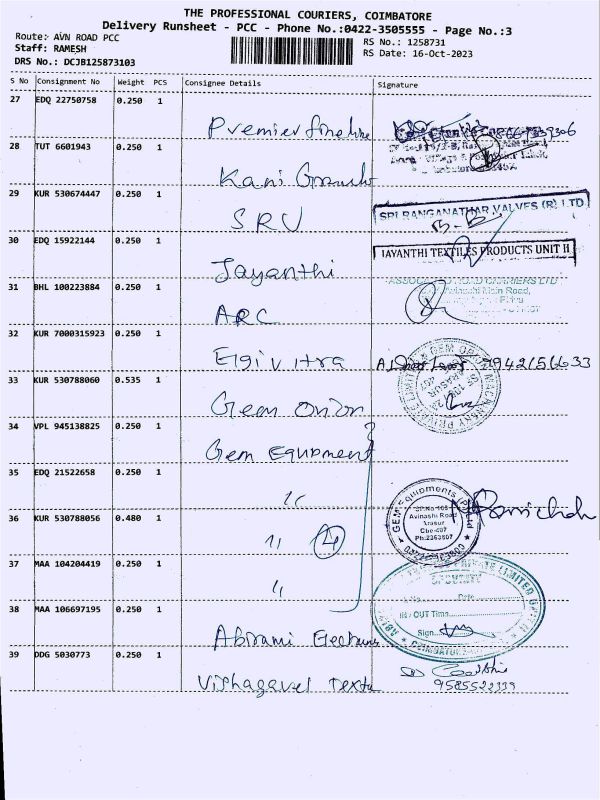 THE PROFESSIONAL COURIERS, COIMBATORE
Delivery Runsheet - PCC - Phone No.:0422-3505555 - Page No.:3
Route: AVN ROAD PCC
RS No.: 1258731
Staff: RAMESH
RS Date: 16-Oct-2023
DRS No.: DCJB125873103
S No Consignment No Weight PCS Consignee Details Signature
27 EDQ 22750758 0.250 1
Premier fineline
28 TUT 6601943 0.250 1
Kani
29 KUR 530674447 0.250 1
SRV
SRI RANGANATHAR VALVES (P) LTD
30 EDQ 15922144 0.250 1
JAYANTHI TEXTILES PRODUCTS UNIT II
Jayanthi
31 BHL 100223884 0.250 1
ASSOCIATED ROAD CARRIERS LTD
Avinashi Main Road,
ARC
32 KUR 7000315923 0.250 1
Elgi Ultra
9942156633
33 KUR 530788060 0.535 1
Gem Orion
34 VPL 945138825 0.250 1
Gem Equipment
35 EDQ 21522658 0.250 1
"
GEM Equipments (P) Ltd
SF.No.103
Avinashi Road
Arasur
Cbe-407
Ph:2363807
36 KUR 530788056 0.480 1
" 4
37 MAA 104204419 0.250 1
"
SECURITY
No. Date
IN / OUT Time
Sign
38 MAA 106697195 0.250 1
Abirami
39 DDG 5030773 0.250 1
9585522339